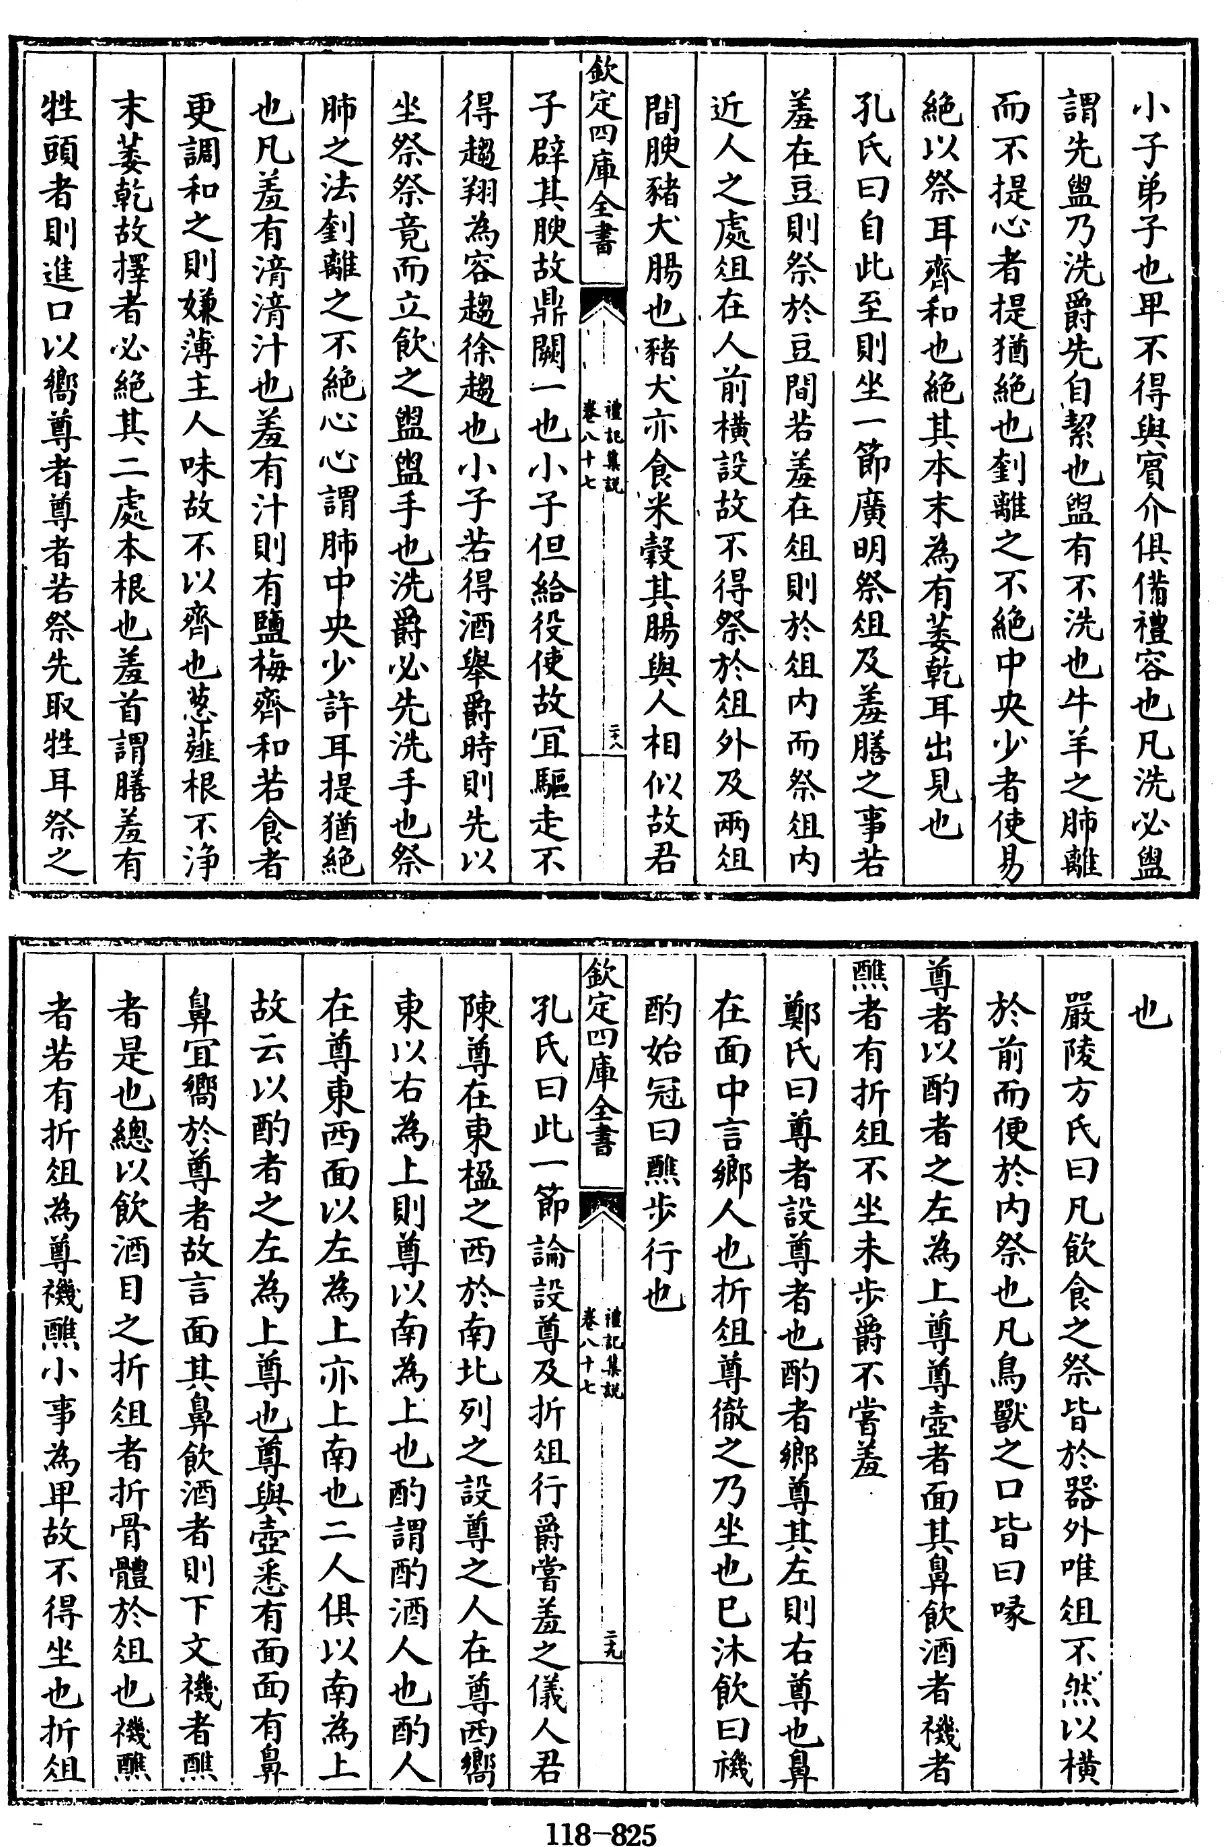 小子弟子也卑不得與賓介俱備禮容也凡洗必盥
謂先盥乃洗爵先自絜也盥有不洗也牛羊之肺離
而不提心者提猶絶也刲離之不絶中央少者使易
絶以祭耳齊和也絶其本末為有萎乾耳出見也
孔氏曰自此至則坐一節廣明祭俎及羞膳之事若
羞在豆則祭於豆間若羞在俎則於俎内而祭俎内
近人之處俎在人前橫設故不得祭於俎外及兩俎
間腴豬犬腸也豬犬亦食米穀其腸與人相似故君
欽定四庫全書
禮記集說
卷八十七
二十八
子辟其腴故鼎闕一也小子但給役使故宜驅走不
得趨翔為容趨徐趨也小子若得酒舉爵時則先以
坐祭祭竟而立飲之盥盥手也洗爵必先洗手也祭
肺之法刲離之不絶心心謂肺中央少許耳提猶絶
也凡羞有湇湇汁也羞有汁則有鹽梅齊和若食者
更調和之則嫌薄主人味故不以齊也葱薤根不浄
末萎乾故擇者必絶其二處本根也羞首謂膳羞有
牲頭者則進口以嚮尊者尊者若祭先取牲耳祭之
也
嚴陵方氏曰凡飲食之祭皆於器外唯俎不然以橫
於前而便於内祭也凡鳥獸之口皆曰喙
尊者以酌者之左為上尊尊壺者面其鼻飲酒者禨者
醮者有折俎不坐未步爵不嘗羞
鄭氏曰尊者設尊者也酌者鄉尊其左則右尊也鼻
在面中言鄉人也折俎尊徹之乃坐也已沐飲曰禨
酌始冠曰醮步行也
欽定四庫全書
禮記集說
卷八十七
二十九
孔氏曰此一節論設尊及折俎行爵嘗羞之儀人君
陳尊在東楹之西於南北列之設尊之人在尊西嚮
東以右為上則尊以南為上也酌謂酌酒人也酌人
在尊東西面以左為上亦上南也二人俱以南為上
故云以酌者之左為上尊也尊與壺悉有面面有鼻
鼻宜嚮於尊者故言面其鼻飲酒者則下文禨者醮
者是也總以飲酒目之折俎者折骨體於俎也禨醮
者若有折俎為尊禨醮小事為卑故不得坐也折俎
118-825